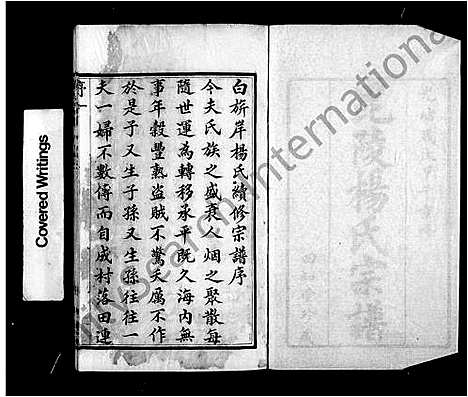 白旂岸楊氏續修宗譜序
今夫氏族之盛衰人烟之聚散每
隨世運為轉移承平既久海內無
事年穀豐熟盜賊不驚夭厲不作
於是子又生子孫又生孫往往一
夫一婦不數傳而自成村落田連
序
一
楊氏宗譜
Covered Writings
Research International